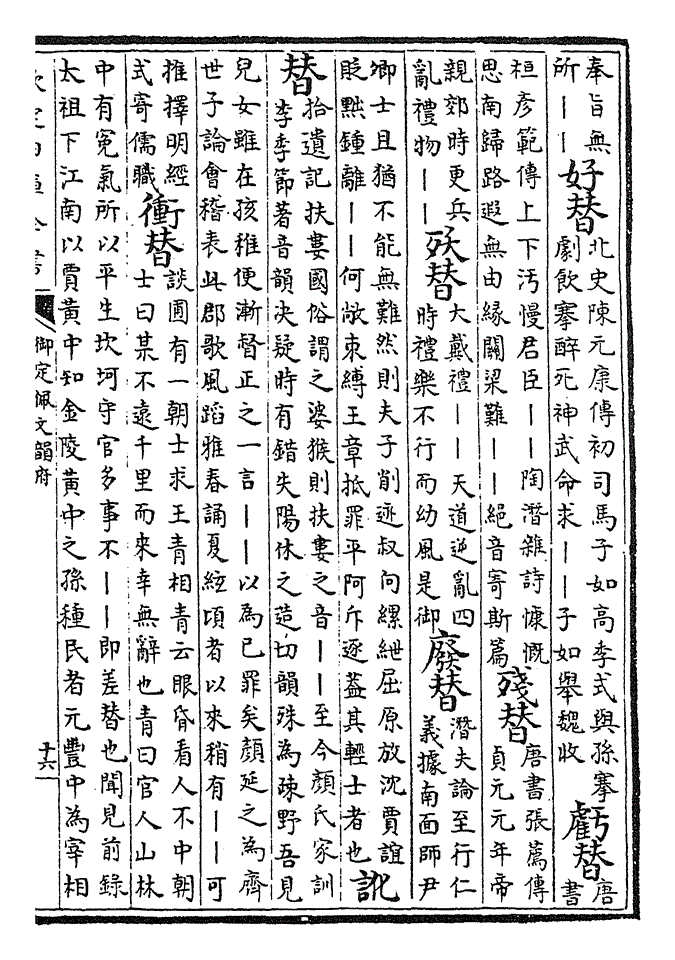 奉旨無
所——
好替
北史陳元康傳初司馬子如高季式與孫搴
劇飲搴醉死神武命求——子如舉魏收
虧替
唐
書
桓彥範傳上下汚慢君臣——陶潛雜詩慷慨
思南歸路遐無由緣關梁難——絕音寄斯篇
殘替
唐書張薦傳
貞元元年帝
親郊時更兵
亂禮物——
殀替
大戴禮——天道逆亂四
時禮樂不行而幼風是御
廢替
潛夫論至行仁
義據南面師尹
卿士且猶不能無難然則夫子削迹叔向縲紲屈原放沈賈誼
貶黜鍾離——何敞束縛王章抵罪平阿斥逐蓋其輕士者也
訛
替
拾遺記扶婁國俗謂之婆猴則扶婁之音——至今顔氏家訓
李季節著音韻决疑時有錯失陽休之造切韻殊為疎野吾見
兒女雖在孩稚便漸督正之一言——以為己罪矣顔延之為齊
世子論會稽表此郡歌風蹈雅春誦夏絃頃者以來稍有——可
推擇明經
式寄儒職
衝替
談圃有一朝士求王青相青云眼昏看人不中朝
士曰某不遠千里而來幸無辭也青曰官人山林
中有寃氣所以平生坎坷守官多事不——即差替也聞見前錄
太祖下江南以賈黃中知金陵黃中之孫種民者元豐中為宰相
欽定四庫全書
御定佩文韻府
十六